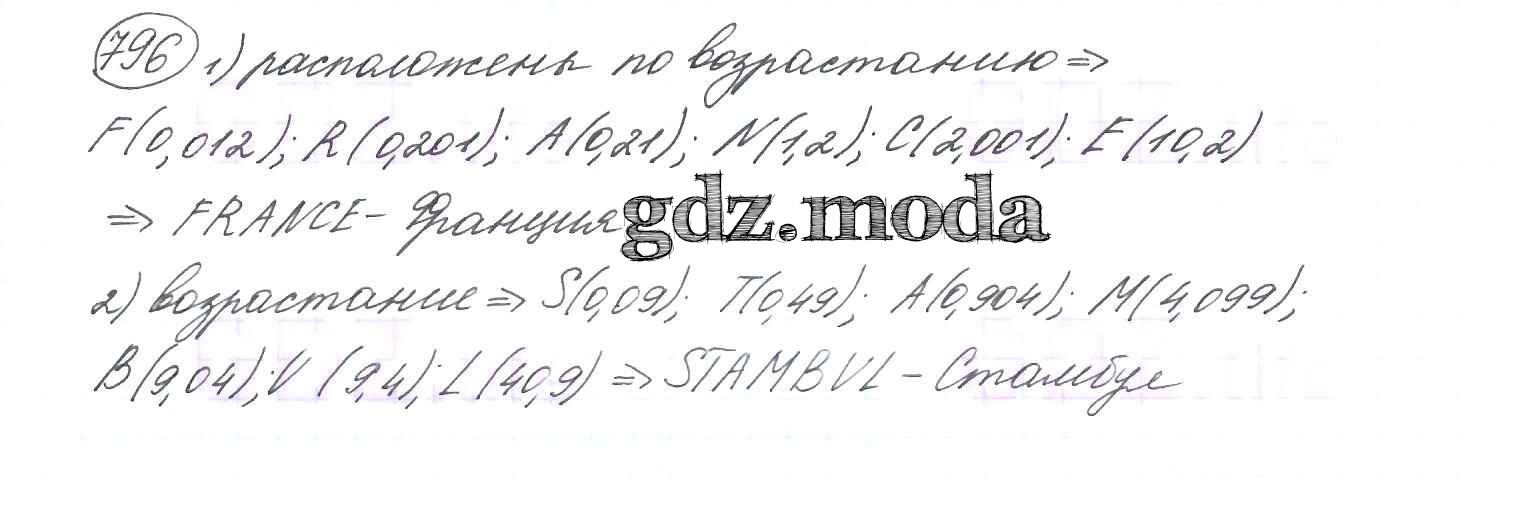 796 1) расположены по возрастанию ⇒
F(0,012); R(0,201); A(0,21); N(1,2); C(2,001); E(10,2)
⇒ FRANCE - Франция gdz.moda
2) возрастание ⇒ S(0,09); T(0,49); A(0,904); M(4,099);
B(9,04); V (9,4); L(40,9) ⇒ STAMBVL - Стамбул